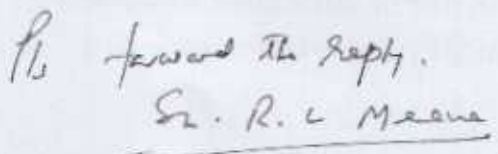 Pls forward the reply.
Sh. R. L Meena